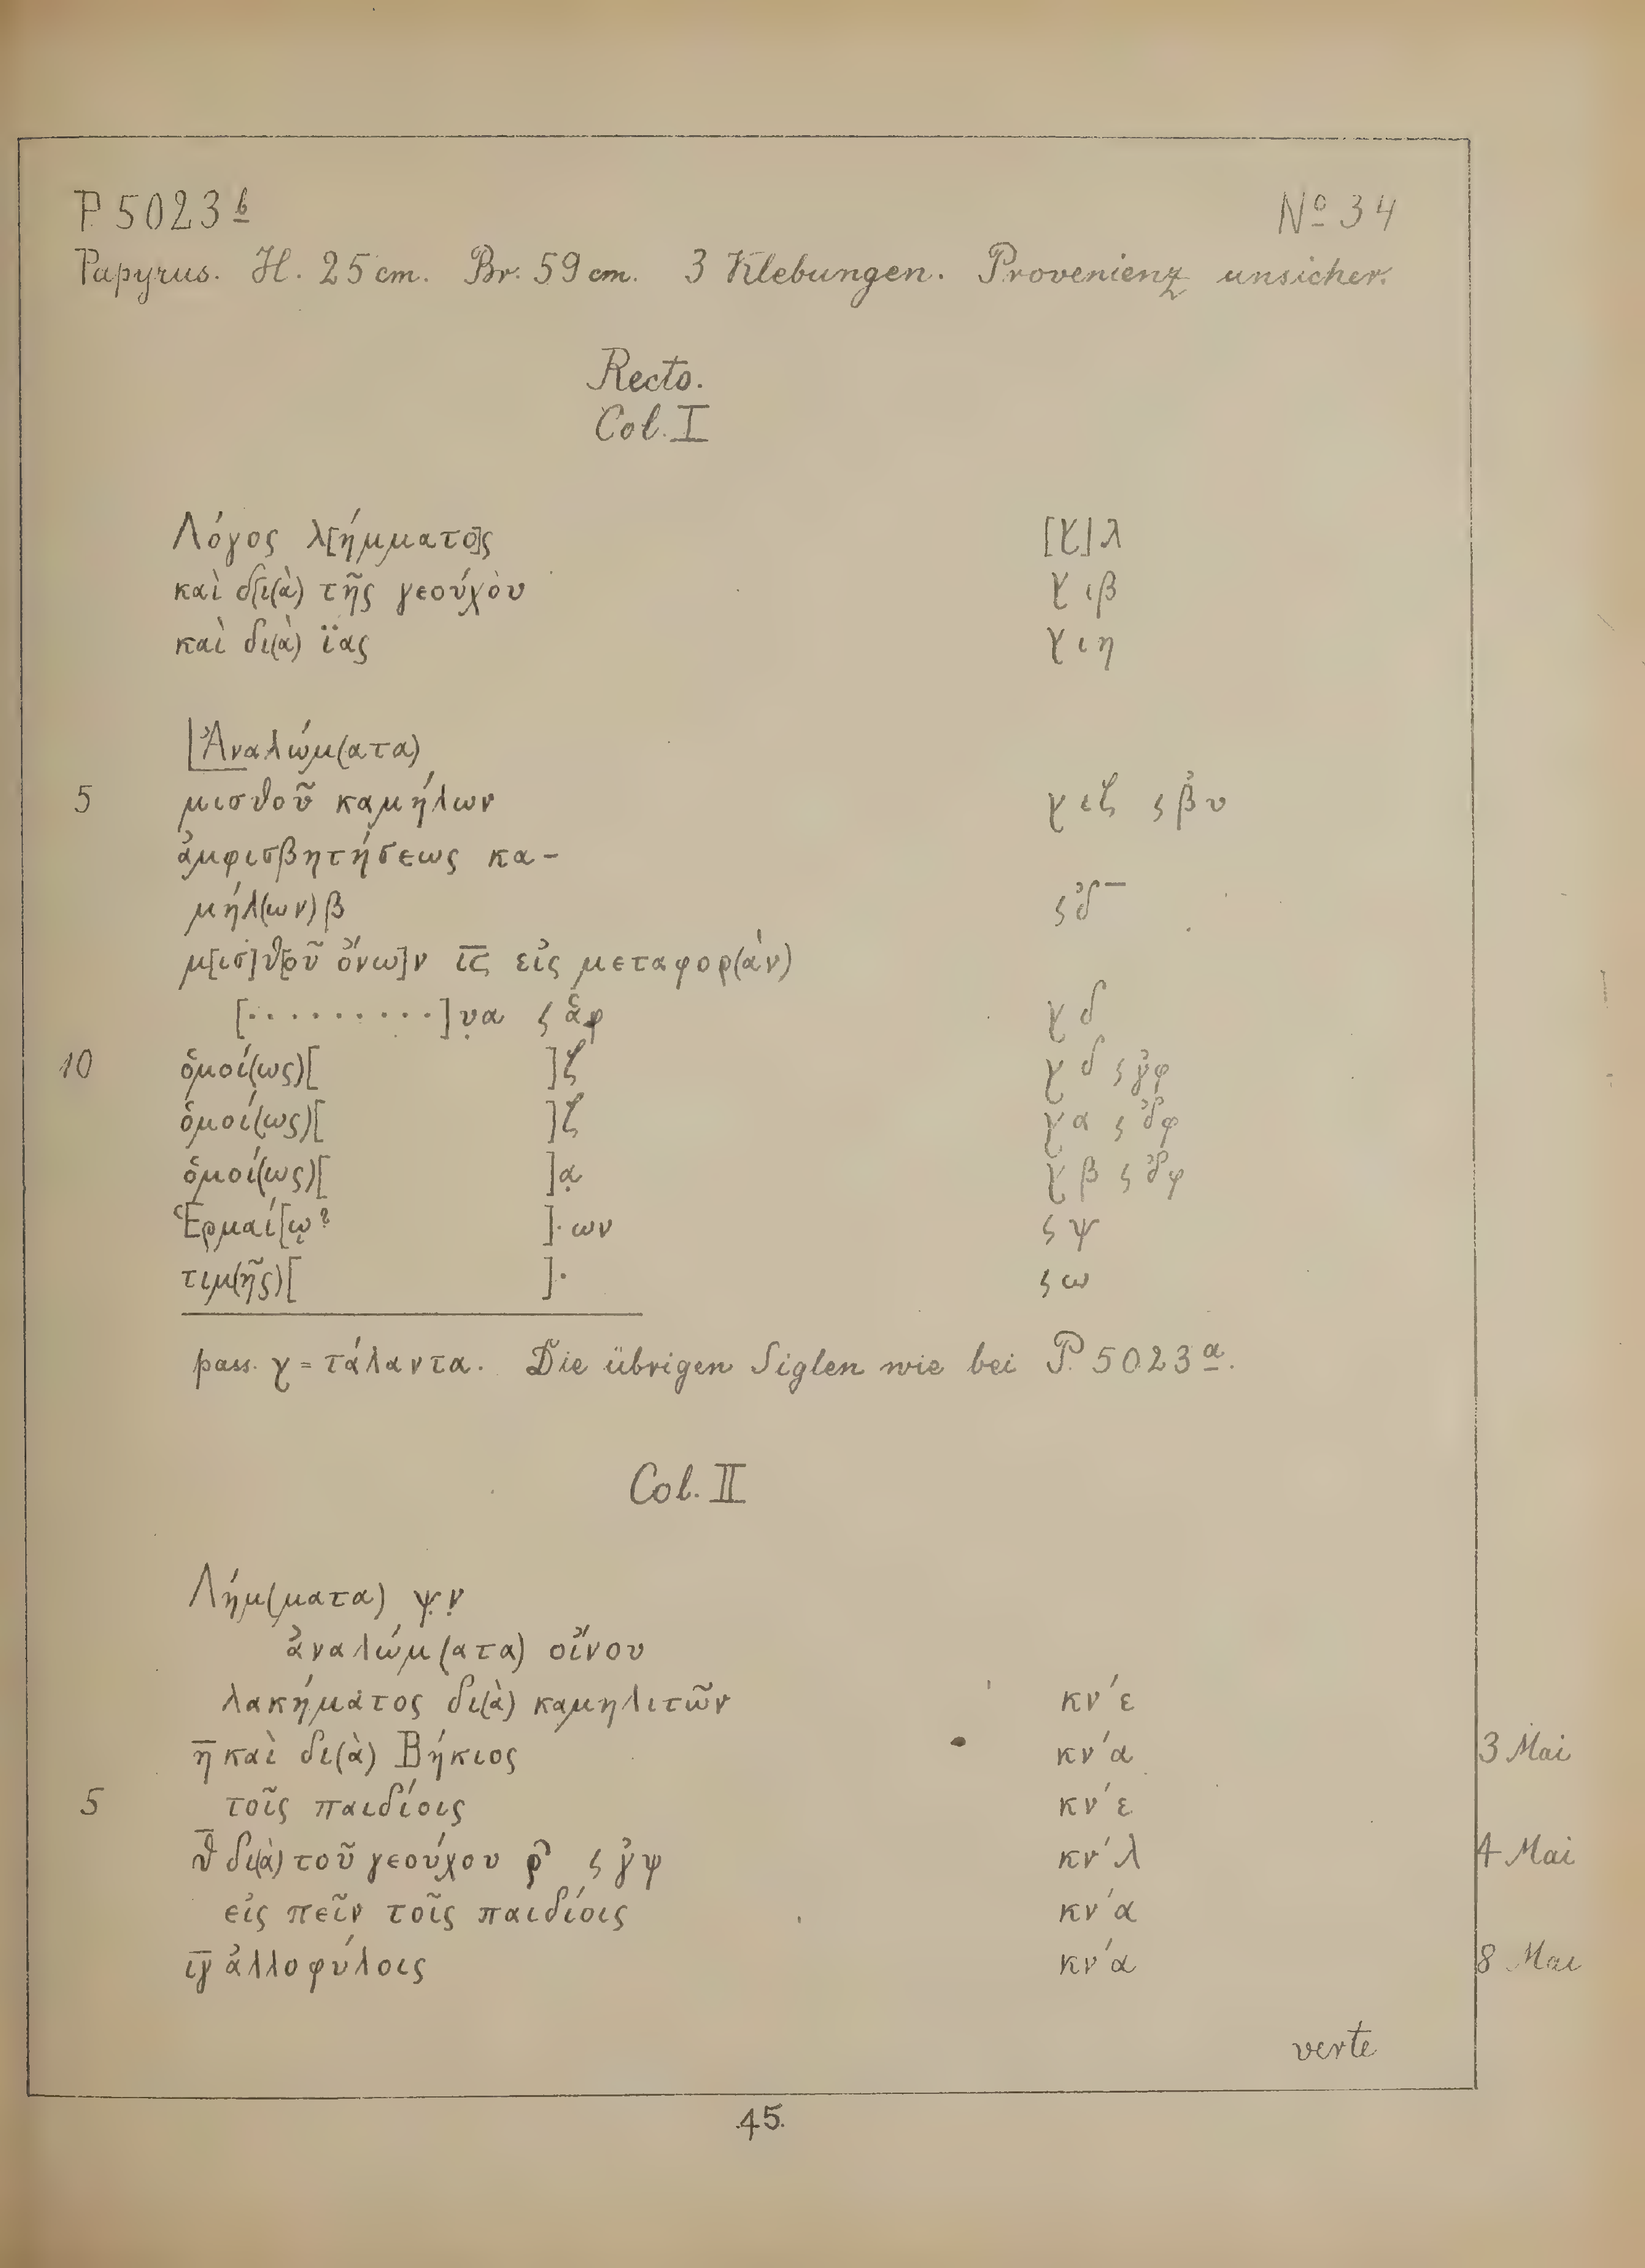 P 5023 b Nº 34
Papyrus. H. 25 cm. Br. 59 cm. 3 Klebungen. Provenienz unsicher.
Recto.
Col. I
Λόγος λ[ήμματο]ς [γ]λ
καὶ δ[ι(ὰ) τῆς γεούχου γ ιβ
καὶ δι(ὰ) ϊας γ ιη
Ἀναλώμ(ατα)
5 μισθοῦ καμήλων γ ιζ ς β̓υ
ἀμφισβητήσεως κα-
μήλ(ων) β ς δ̓ –
μ[ισ]θ[οῦ ὄνω]ν ι̅ς̅ εἰς μεταφορ(ὰν)
[· · · · · · · · ·]υ̣α ς ἁφ γ δ
10 ὁμοί(ως)[ ]ζ γ δ ς γ̓φ
ὁμοί(ως)[ ]ζ γ α ς δ̓φ
ὁμοί(ως)[ ]α̣ γ β ς δ̓φ
Ἑρμαί[ῳ? ]·ων ς ψ
τιμ(ῆς)[ ]· ς ω
pass. γ = τάλαντα. Die übrigen Siglen wie bei P. 5023 a.
Col. II
Λήμ(ματα) ψ̣ν̣
ἀναλώμ(ατα) οἴνου
λακήματος δι(ὰ) καμηλιτῶν κν´ε
η̅ καὶ δι(ὰ) Βήκιος κν´α 3 Mai
5 τοῖς παιδίοις κν´ε
θ̅ δι(ὰ) τοῦ γεούχου ρ ς γ̓ψ κν´λ 4 Mai
εἰς πεῖν τοῖς παιδίοις κν´α
ι̅γ̅ ἀλλοφύλοις κν´α 8 Mai
verte
45.